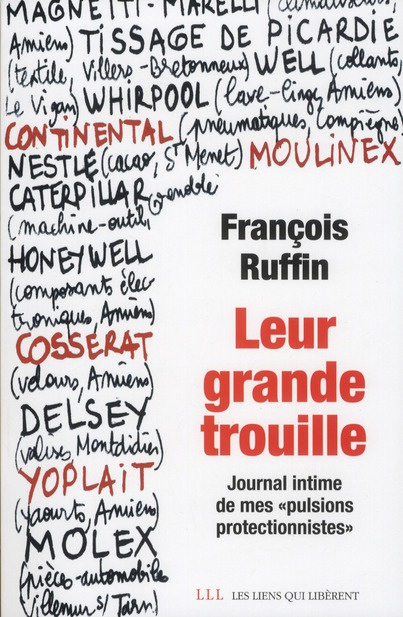 MAGNETTI-MARELLI (climatiseurs,
Amiens) TISSAGE DE PICARDIE
(textile, Villers-Bretonneux) WELL (collants,
Le Vigan) WHIRPOOL (lave-linge, Amiens)
CONTINENTAL (pneumatiques, Compiègne)
NESTLÉ (cacao, St Menet) MOULINEX
CATERPILLAR
(machine-outil, Grenoble)
HONEYWELL
(composants élec-
troniques, Amiens)
COSSERAT
(velours, Amiens)
DELSEY
(valises, Montdidier)
YOPLAIT
(yaourts, Amiens)
MOLEX
(pièces-automobile
Villemur s/ Tarn)
François
Ruffin
Leur
grande
trouille
Journal intime
de mes «pulsions
protectionnistes»
LLL LES LIENS QUI LIBÈRENT